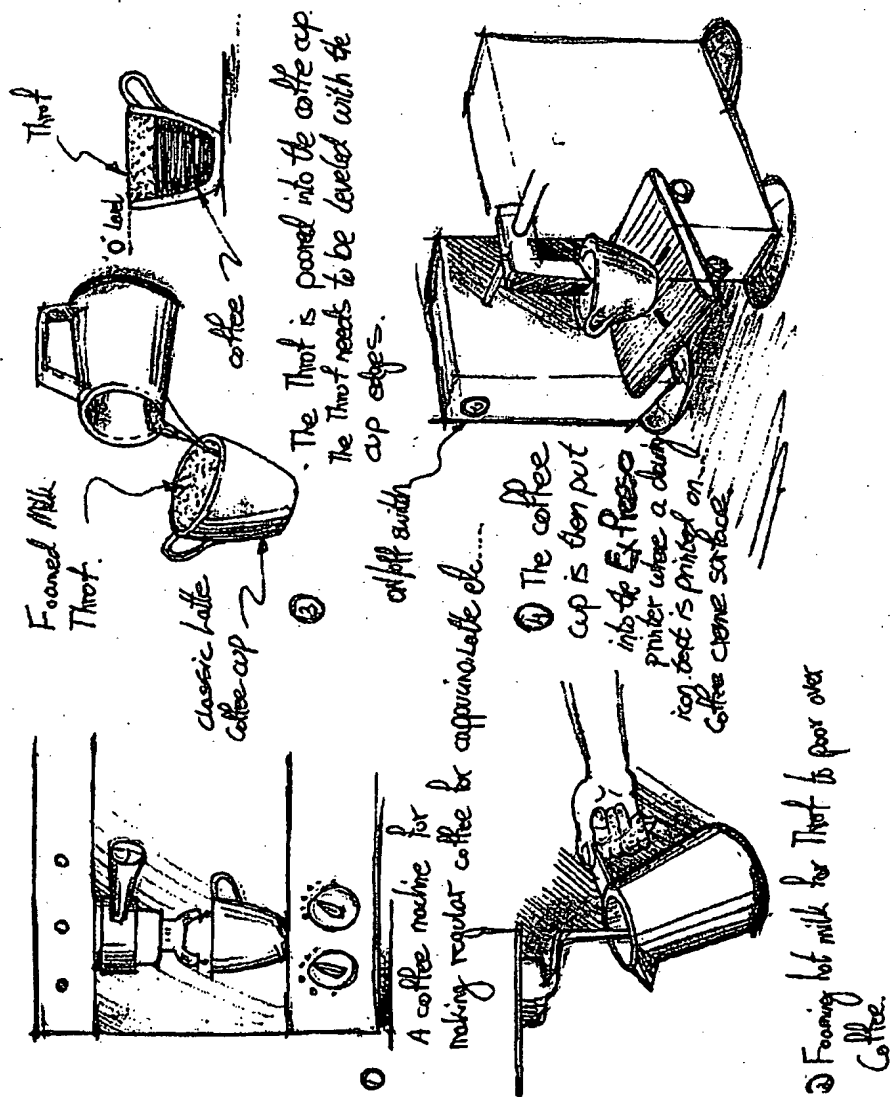 ①
A coffee machine for
making regular coffee for cappucino.Latte etc.....
② Foaming hot milk for Throf to poor over
Coffee.
Foamed Milk
Throf.
classic Latte
Coffee-cup
③
"O" level
Throf
coffee
The Throf is poored into the coffe cup.
The Throf needs to be leveled with the
cup edges.
on/off switch
④ The coffee
cup is then put
into the
printer where a
icon.text is printed on
Coffee creme surface